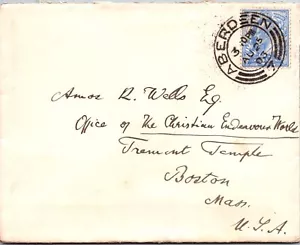 ABERDEEN
Amos R. Wells Esq
Office of the Christian Endeavour World
Tremont Temple
Boston
Mass.
U.S.A.